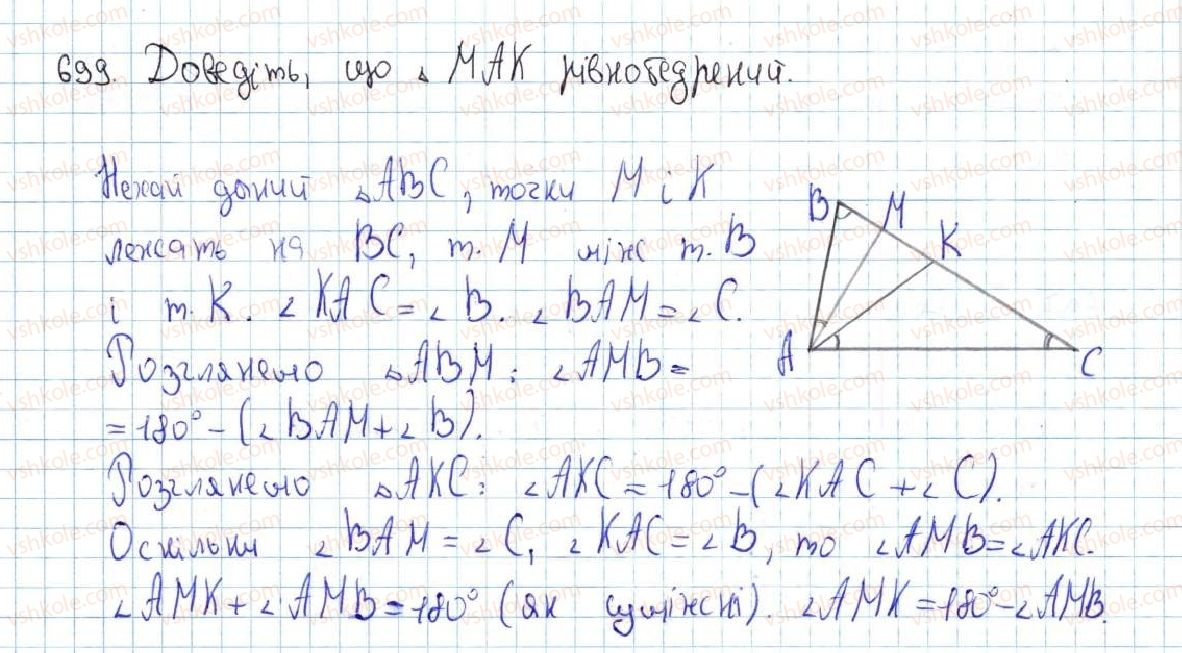 699. Доведіть, що △ MAK рівнобедрений.
Нехай даний △ABC, точки M і K
лежать на BC, т. M між т. B
і т. K. ∠ KAC = ∠ B. ∠ BAM = ∠ C.
Розглянемо △ABM: ∠AMB =
= 180° - (∠ BAM + ∠ B).
Розглянемо △AKC: ∠AKC = 180° - (∠KAC + ∠ C).
Оскільки ∠ BAM = ∠ C, ∠ KAC = ∠ B, то ∠AMB = ∠AKC.
∠AMK + ∠ AMB = 180° (як суміжні). ∠AMK = 180° - ∠AMB.
B M K A C
vshkole.com